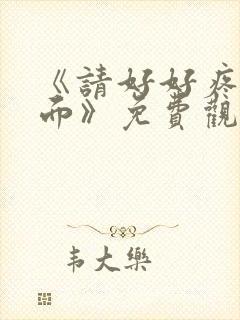 《請好好疼
而》免費觀
韦大樂